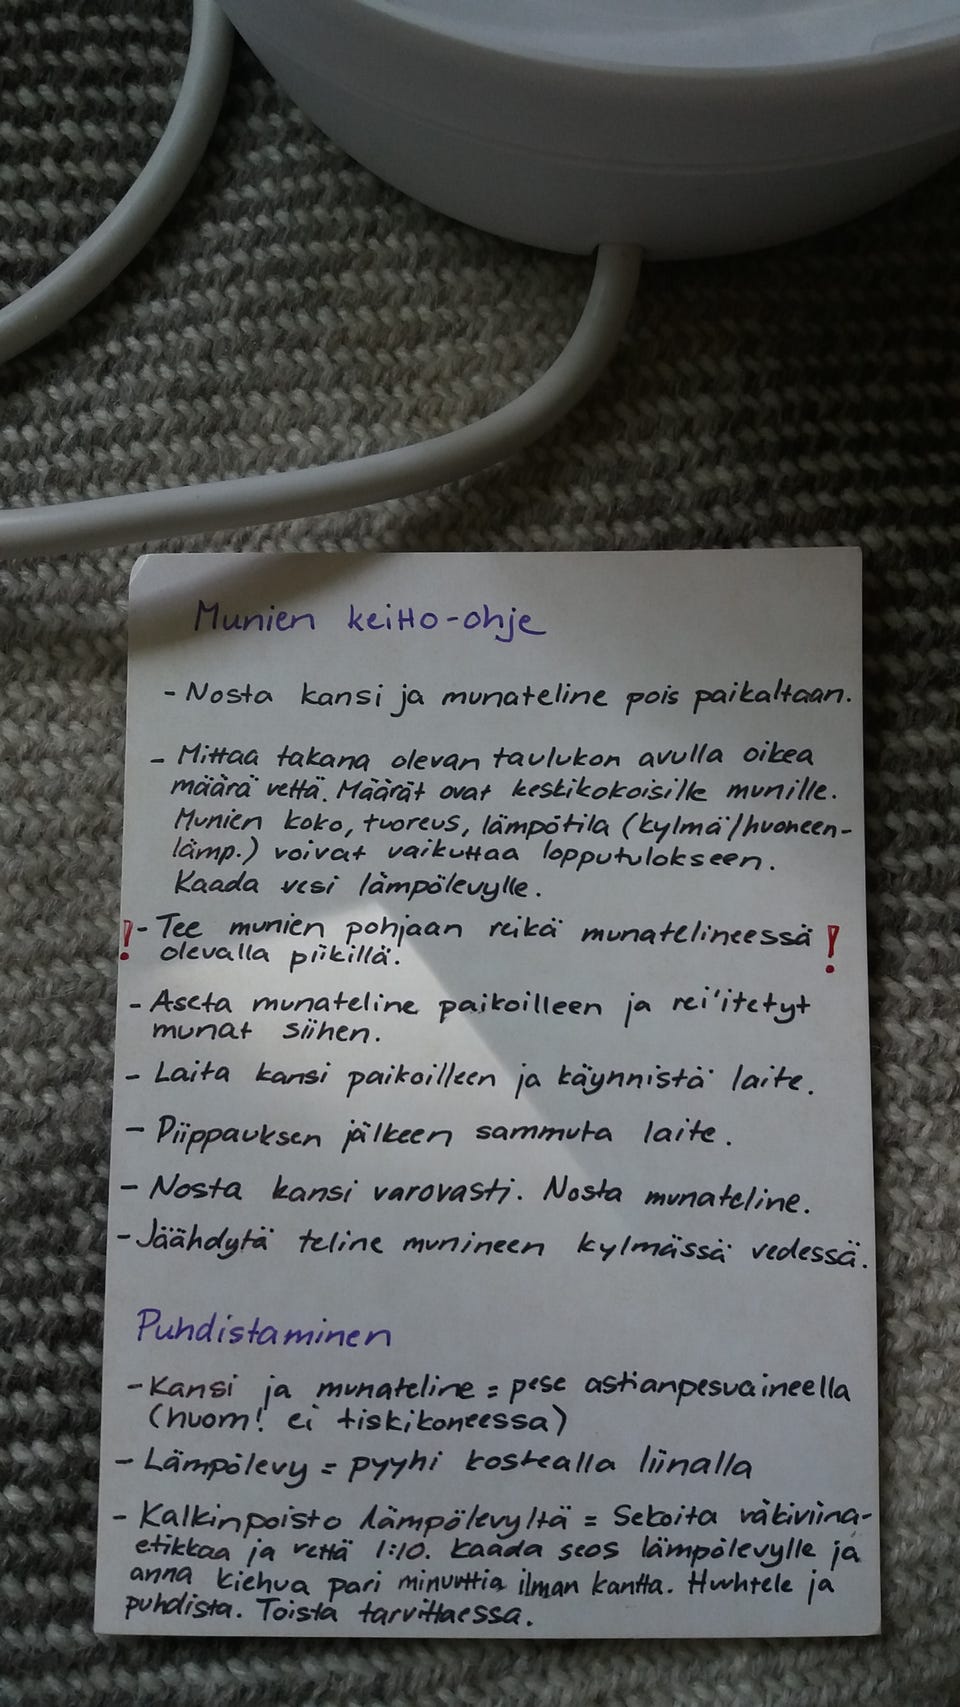 Munien keitto-ohje
- Nosta kansi ja munateline pois paikaltaan.
- Mittaa takana olevan taulukon avulla oikea
määrä vettä. Määrät ovat keskikokoisille munille.
Munien koko, tuoreus, lämpötila (kylmä/huoneen-
lämp.) voivat vaikuttaa lopputulokseen.
Kaada vesi lämpölevylle.
!- Tee munien pohjaan reikä munatelineessä !
olevalla piikillä.
- Aseta munateline paikoilleen ja rei'itetyt
munat siihen.
- Laita kansi paikoilleen ja käynnistä laite.
- Piippauksen jälkeen sammuta laite.
- Nosta kansi varovasti. Nosta munateline.
- Jäähdytä teline munineen kylmässä vedessä.
Puhdistaminen
- Kansi ja munateline = pese astianpesuaineella
(huom! ei tiskikoneessa)
- Lämpölevy = pyyhi kostealla liinalla
- Kalkinpoisto lämpölevyltä = Sekoita väkiviina-
etikkaa ja vettä 1:10. Kaada seos lämpölevylle ja
anna kiehua pari minuuttia ilman kantta. Huuhtele ja
puhdista. Toista tarvittaessa.